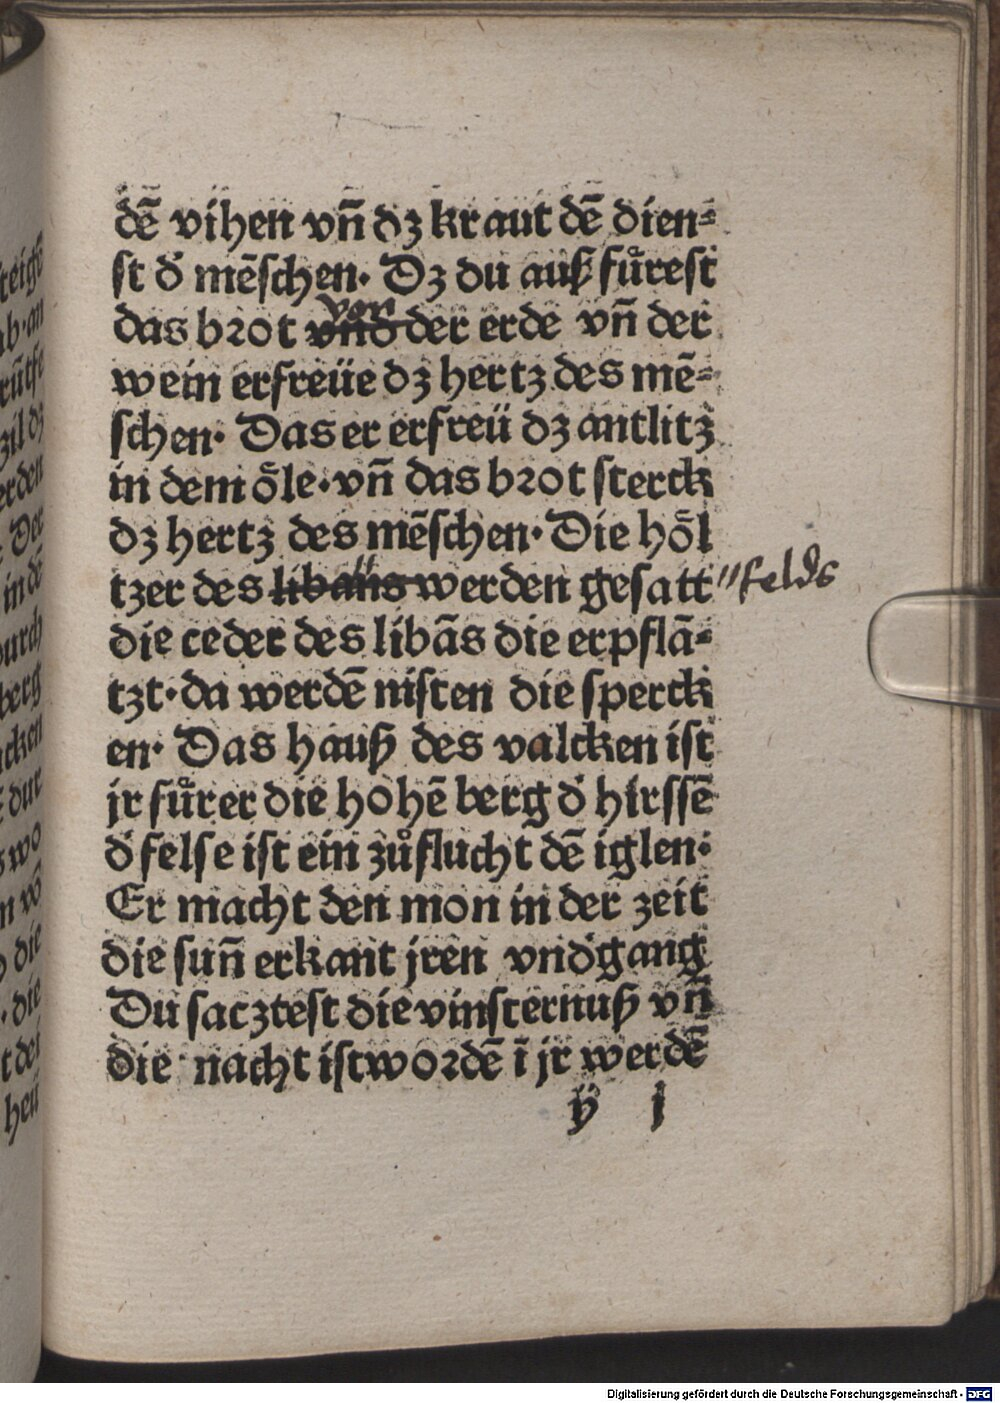 dē vihen vn̄ dʒ kraut dē dien⸗
st d̕ mēschen· Dʒ du auß fůrest
das brot vnd von der erde vn̄ der
wein erfreüe dʒ hertz des mē⸗
schen· Das er erfreü dʒ antlitz
in dem o̊le·vn̄ das brot sterck
dʒ hertz des mēschen· Die ho̊l
tzer des libans werden gesatt "felds
die ceder des libās die erpflā⸗
tzt·da werdē nisten die sperck
en· Das hauß des valcken ist
jr fůrer die hohē berg d̕ hirssē
d̕ felse ist ein zůflucht dē iglen·
Er macht den mon in der zeit
die sun̄ erkant jren vnd̕gang
Du sacztest die vinsternuß vn̄
die nacht ist wordē ī jr werdē
ÿ j
Digitalisierung gefördert durch die Deutsche Forschungsgemeinschaft - DFG